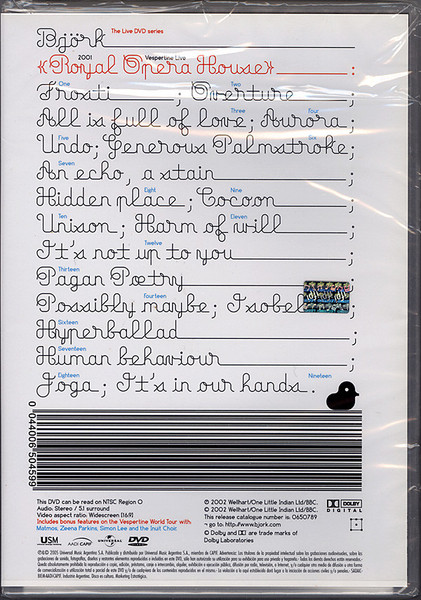 Björk The Live DVD series
2001 Vespertine Live
«Royal Opera House» :
One Two
Frosti ; Overture ;
Three Four
All is full of love; Aurora ;
Five Six
Undo; Generous Palmstroke;
Seven
An echo, a stain ;
Eight Nine
Hidden place ; Cocoon ;
Ten Eleven
Unison ; Harm of will ;
Twelve
It's not up to you ;
Thirteen
Pagan Poetry ;
Fourteen
Possibly maybe; Isobel ;
Sixteen
Hyperballad ;
Seventeen
Human behaviour ;
Eighteen Nineteen
Joga ; It's in our hands .
0 044006 504599
This DVD can be read on NTSC Region 0
Audio: Stereo / 5.1 surround
Video aspect ratio: Widescreen (16:9)
Includes bonus features on the Vespertine World Tour with
Matmos, Zeena Parkins, Simon Lee and the Inuit Choir.
℗ 2002 Wellhart/One Little Indian Ltd/BBC.
© 2002 Wellhart/One Little Indian Ltd/BBC.
This release catalogue number is: 0650789
¬ go to: http://www.bjork.com
Dolby and are trade marks of
Dolby Laboratories
DOLBY
DIGITAL
USM AADI CAPIF UNIVERSAL DVD